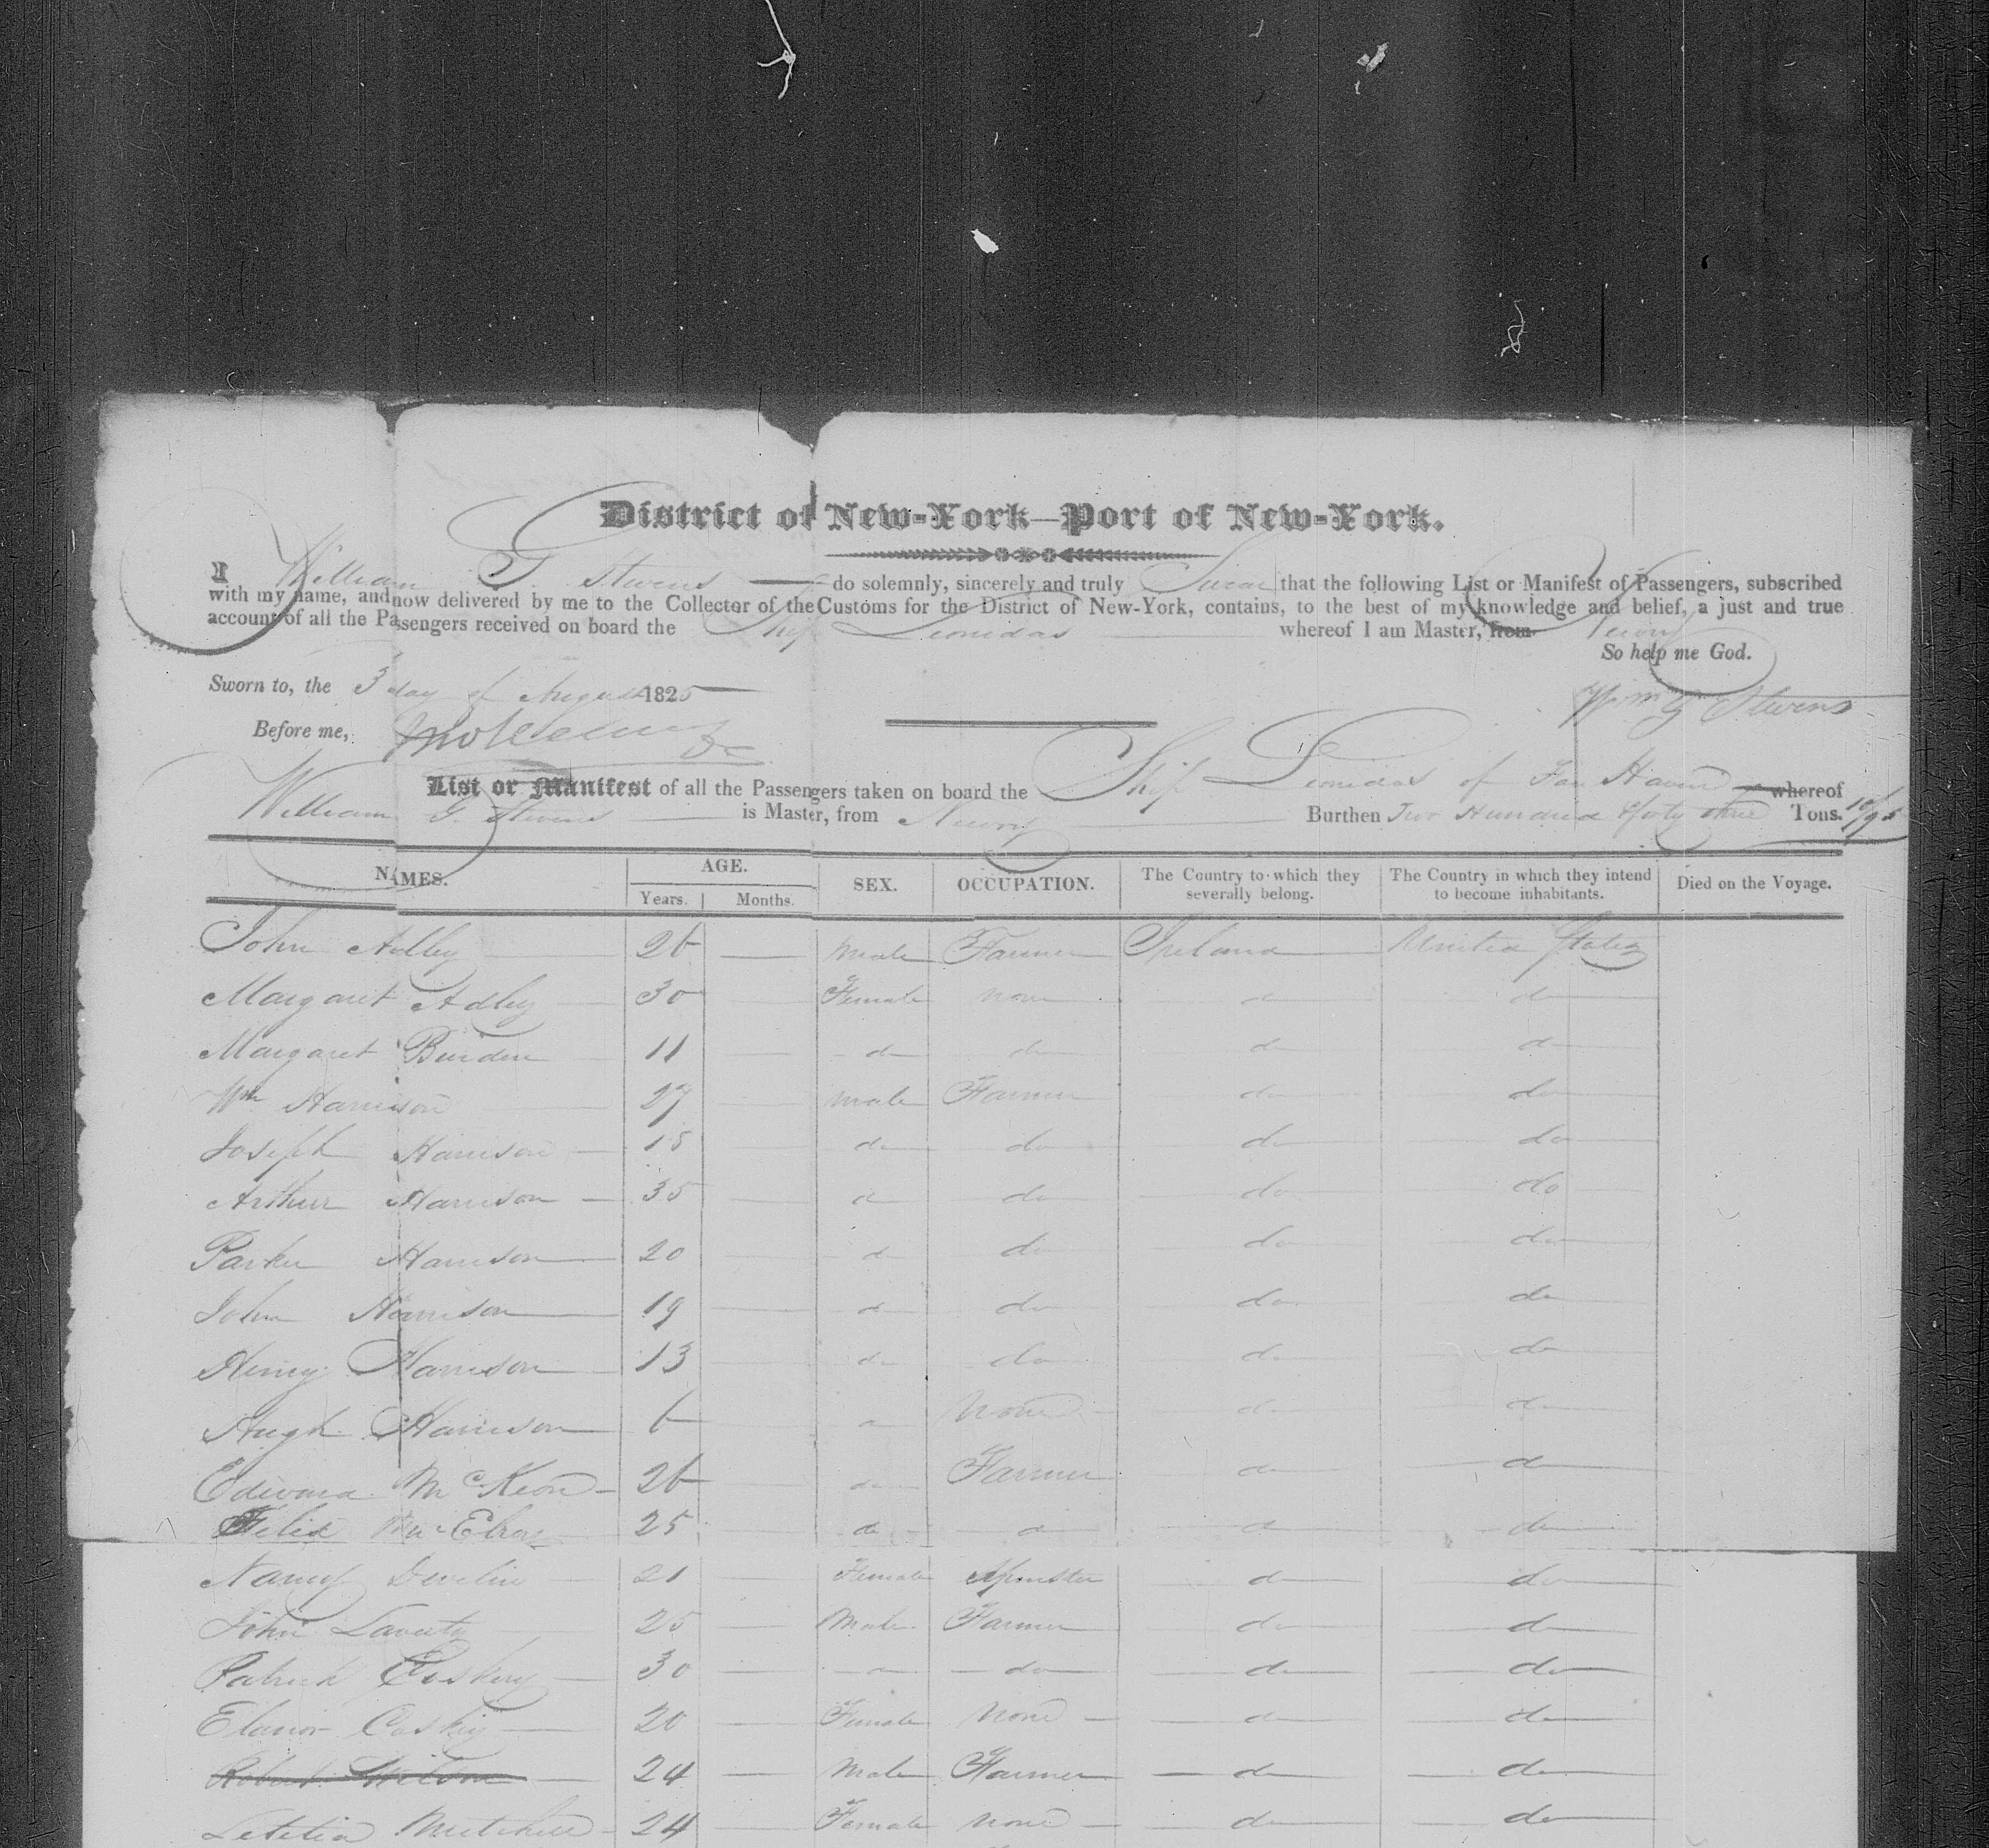 District of New-York—Port of New-York.
I William G. Stevens do solemnly, sincerely and truly Swear that the following List or Manifest of Passengers, subscribed
with my name, and now delivered by me to the Collector of the Customs for the District of New-York, contains, to the best of my knowledge and belief, a just and true
account of all the Passengers received on board the Ship Leonidas whereof I am Master, from Newry
So help me God.
Sworn to, the 3 day of August 1825
Wm G Stevens
Before me,
List or Manifest of all the Passengers taken on board the Ship Leonidas of Fair Haven whereof
William G. Stevens is Master, from Newry Burthen Two Hundred & forty three Tons.
NAMES. AGE. SEX. OCCUPATION. The Country to which they severally belong. The Country in which they intend to become inhabitants. Died on the Voyage.
Years. Months.
John Adley 26 Male Farmer Ireland United States
Margaret Adley 30 Female None do do
Margaret Burden 11 do do do do
Wm Harrison 27 Male Farmer do do
Joseph Harrison 15 do do do do
Arthur Harrison 35 do do do do
Parker Harrison 20 do do do do
John Harrison 19 do do do do
Henry Harrison 13 do do do do
Hugh Harrison 6 do None do do
Edward McKeon 26 do Farmer do do
Felix McElroy 25 do do do do
Nancy Develin 21 Female Spinster do do
John Laverty 25 Male Farmer do do
Patrick Coskery 30 do do do do
Elanor Coskery 20 Female None do do
Robert Wilson 24 Male Farmer do do
Letitia Mutchell 24 Female None do do